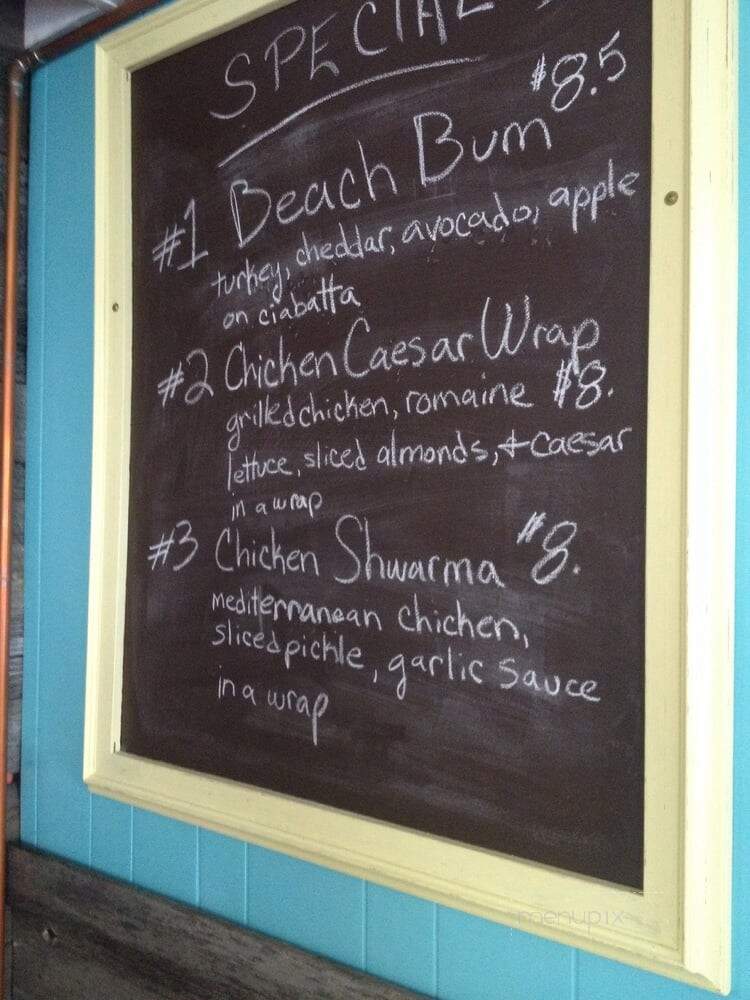 SPECIAL
$8.5
#1 Beach Bum
turkey, cheddar, avocado, apple
on ciabatta
#2 Chicken Caesar Wrap
grilled chicken, romaine $8.
lettuce, sliced almonds, + caesar
in a wrap
#3 Chicken Shwarma $8.
mediterranean chicken,
sliced pickle, garlic sauce
in a wrap
menupix